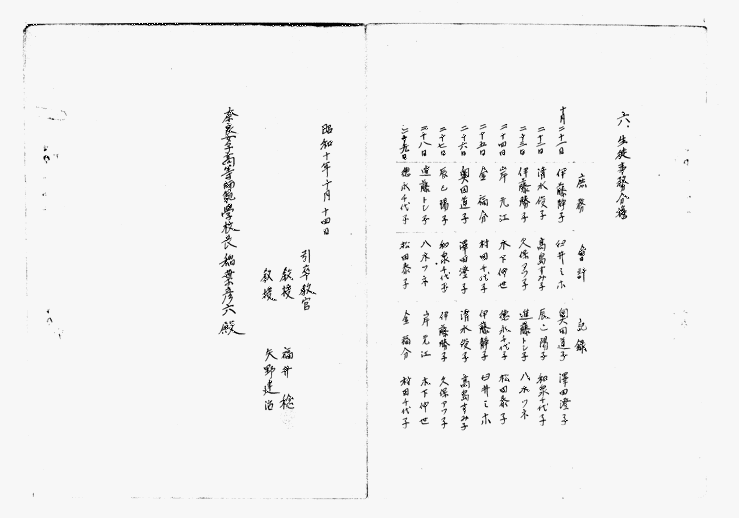 六、生徒事務分擔
庶務 會計 記録
十月二十一日 伊藤靜子 臼井ミホ 奥田道子 澤田澄子
二十二日 清水俊子 高島すみ子 辰己陽子 和泉千代子
二十三日 伊藤勝子 久保アツ子 進藤トシ子 八木ツネ
二十四日 岸元江 木下仲世 德永千代子 松田泰子
二十五日 金福介 村田千代子 伊藤靜子 臼井ミホ
二十六日 奥田道子 澤田澄子 清水俊子 高島すみ子
二十七日 辰己陽子 和泉千代子 伊藤勝子 久保アツ子
二十八日 進藤トシ子 八木ツネ 岸元江 木下仲世
二十九日 德永千代子 松田泰子 金福介 村田千代子
昭和十年十月十四日
引率教官
教授 福井
教授 矢野建治
奈良女子高等師範學校長 稲葉彦六殿